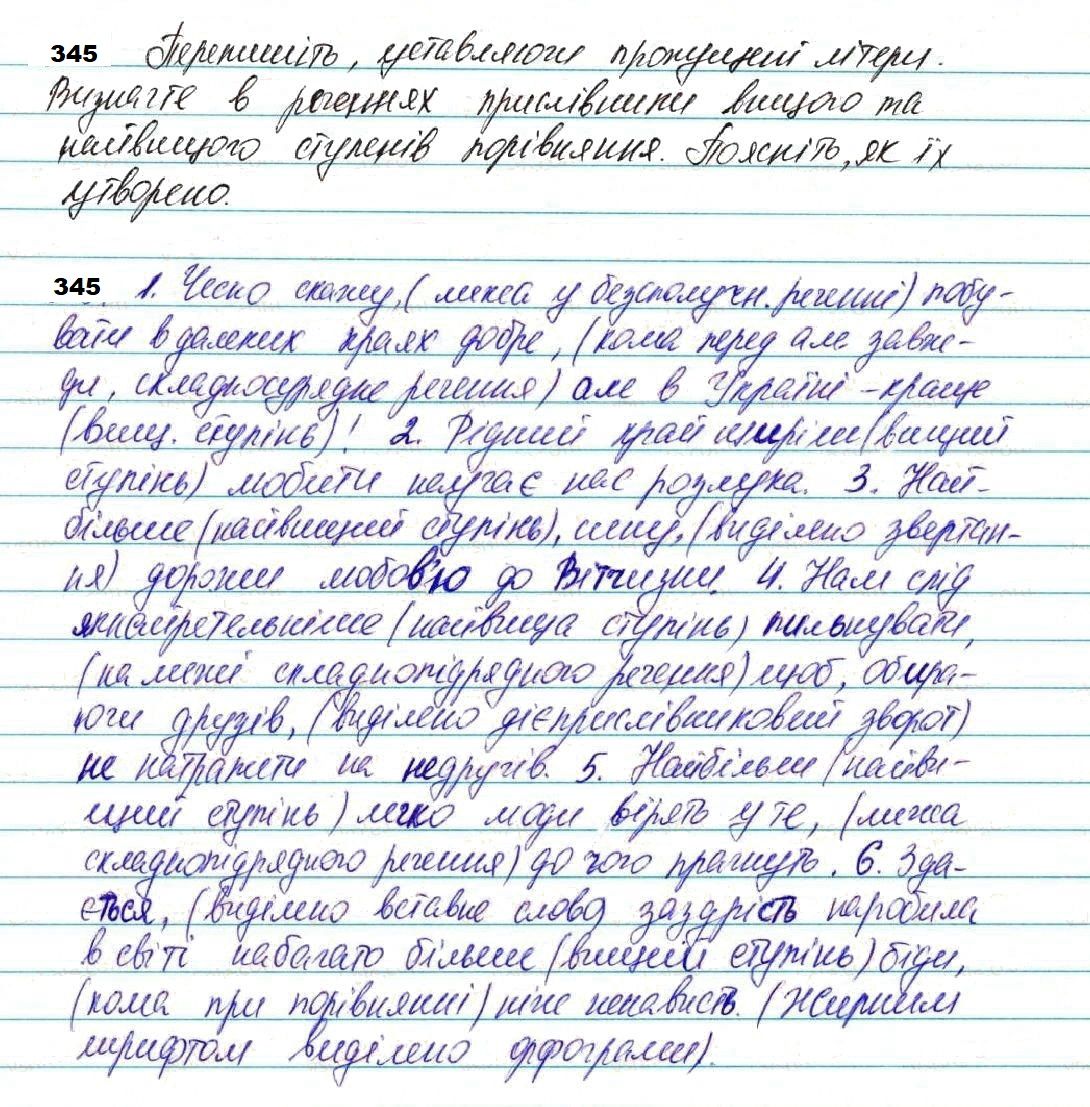 345 Перепишіть, уставляючи пропущені літери.
Визначте в реченнях прислівники вищого та
найвищого ступенів порівняння. Поясніть, як їх
утворено.
345 1. Чесно скажу, (межа у безсполучн. реченні) побу-
вати в далеких краях добре, (кома перед але завж-
ди, складносурядне речення) але в Україні - краще
(вищ. ступінь)! 2. Рідний край щиріше (вищий
ступінь) любити научає нас розлука. 3. Най-
більше (найвищий ступінь), сину, (виділено звертан-
ня) дорожи любов'ю до Вітчизни. 4. Нам слід
якнайретельніше (найвища ступінь) пильнувати,
(на межі складнопідрядного речення) щоб, обира-
ючи друзів, (виділено дієприслівниковий зворот)
не натрапити на недругів. 5. Найбільш (найви-
щий ступінь) легко люди вірять у те, (межа
складнопідрядного речення) до чого прагнуть. 6. Зда-
ється, (виділено вставне слово) заздрість наробила
в світі набагато більше (вищий ступінь) біди,
(кома при порівнянні) ніж ненависть. (Жирним
шрифтом виділено орфограми).